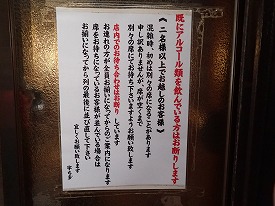 既にアルコール類を飲んでいる方はお断りします
《二名様以上でお越しのお客様》
混雑時、初めは別々の席になることがあります
申し訳ありませんが、席が空くまで
別々の席にてお待ち下さいますようお願い致します
店内でのお待ち合わせはお断りしています
お連れの方が全員お揃いになってからのご案内になります
席をお待ちになっているお客様が並んでいる場合は
お揃いになってから列の最後に並び直して下さい
宜しくお願い致します